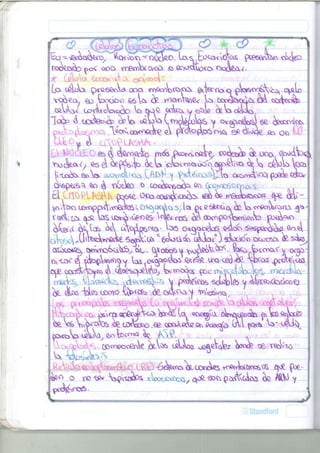 Células Eucariotas
Eu = verdadero, Karion = núcleo. Las Eucariotas presentan núcleo
rodeado por una membrana o envoltura nuclear.
* Célula eucariota animal:
La célula presenta una membrana externa plasmática que la
rodea, su función es la de mantener la del contenido
celular controlando lo que entra y sale de la célula.
Todo el contenido de la célula (moléculas y organelos) se denomina
protoplasma. Técnicamente el protoplasma se divide en un NÚ-
CLEO y el CITOPLASMA.
El NÚCLEO es el elemento más prominente, rodeado de una envoltura
nuclear, es el depósito de la información genética de la célula loca-
lizada en la cromatina (ADN y proteínas), la cromatina puede estar
dispersa en el núcleo o condensada en cromosomas.
El CITOPLASMA posee una red de membranas que deli-
mitan compartimentos: organelos; la presencia de la membrana ga-
rantiza que las condiciones internas del compartimento puedan
diferir de las del citoplasma. Los organelos están suspendidos en el
citosol, (literalmente significa "solución celular") solución acuosa de sales,
azúcares, aminoácidos, ác. grasos y nucleótidos. Para formar y orga-
nizar el citoplasma y los organelos existe una red de fibras proteicas
que constituyen el citoesqueleto, formados por microtúbulos,
filamentos y proteínas solubles
de ellas tales como fibras de actina y miosina.
Los principales
Mitocondria: donde la energía almacenada
de los hidratos de carbono se convierte en energía útil para la célula
para la célula, en forma de ATP.
Cloroplastos: componente de las células vegetales donde se realiza
la fotosíntesis.
Retículo endoplasmático (RE): Sistema de membranosos que pue-
den o no ser tapizados ribosomas, que son partículas de ARN y
proteínas.
Standford